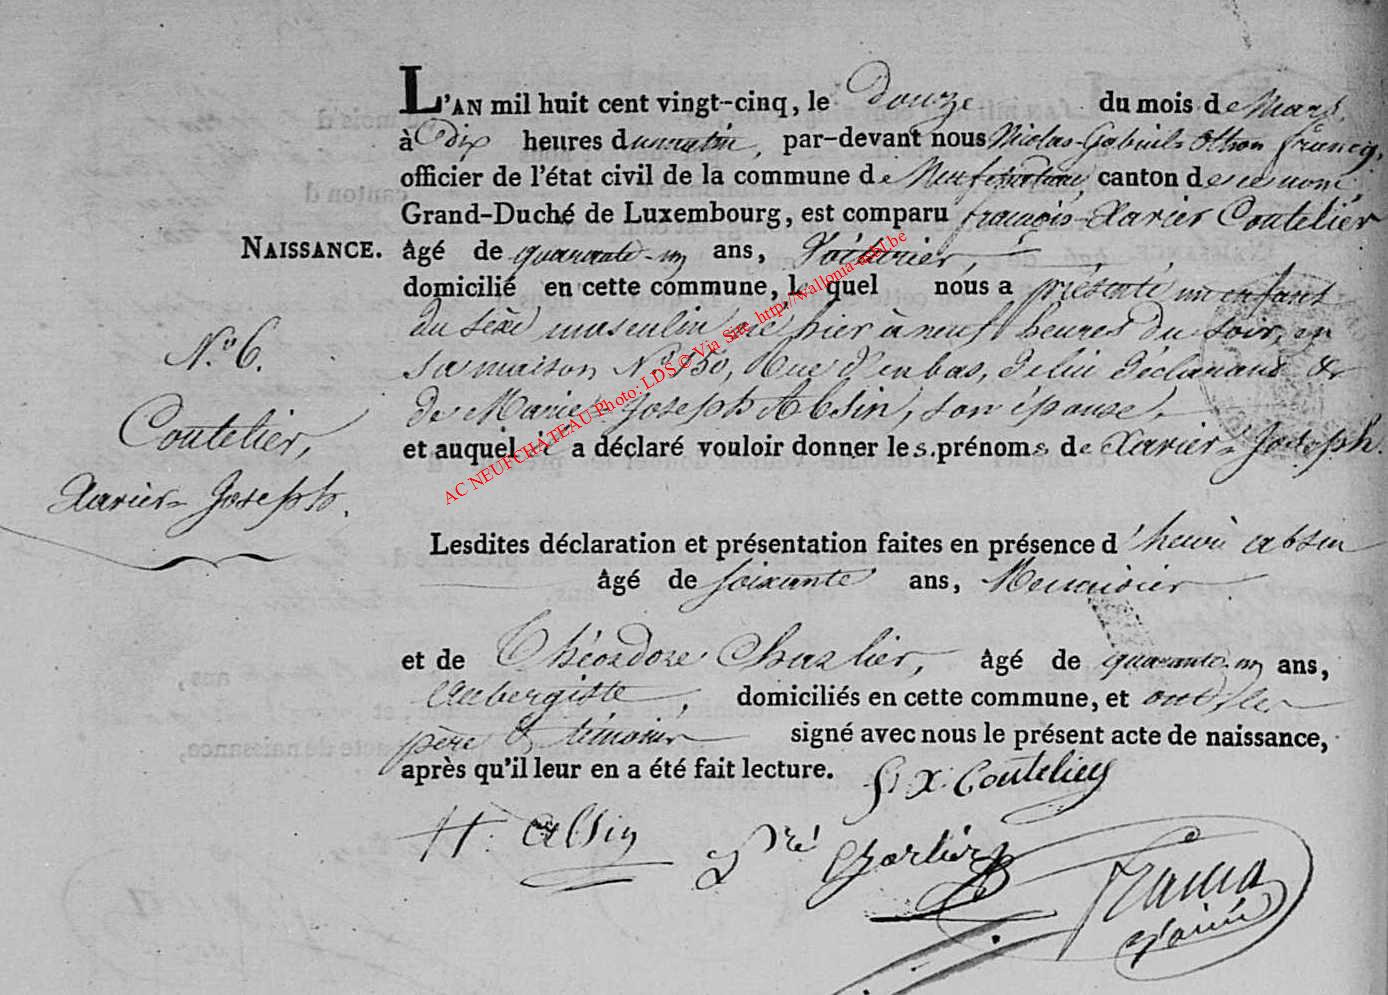 L'AN mil huit cent vingt-cinq, le Douze du mois de Mars,
à Dix heures du matin, par-devant nous Nicolas-Gabriel-Othon
officier de l'état civil de la commune de Neufchateau, canton de ce nom
Grand-Duché de Luxembourg, est comparu françois-Xavier Coutelier
NAISSANCE. âgé de quarante-un ans, Voiturier,
domicilié en cette commune, le quel nous a présenté un enfant
du sèxe masculin, né hier à neuf heures du soir, en
sa maison N.º 150, Rue d'enbas, de lui déclarant &
de Marie-Joseph Absin, son épouse,
et auquel il a déclaré vouloir donner les prénoms de Xavier-Joseph.
N.º 6.
Coutelier,
Xavier-Joseph.
Lesdites déclaration et présentation faites en présence d'henri absin
âgé de soixante ans, Meunier
et de Théodore Charlier, âgé de quarante-un ans,
Aubergiste, domiciliés en cette commune, et ont les
père & témoins signé avec nous le présent acte de naissance,
après qu'il leur en a été fait lecture.
f. x. Coutelier
H. absin
Charlier
AC NEUFCHATEAU Photo: LDS © Via Site http://wallonia-asbl.be